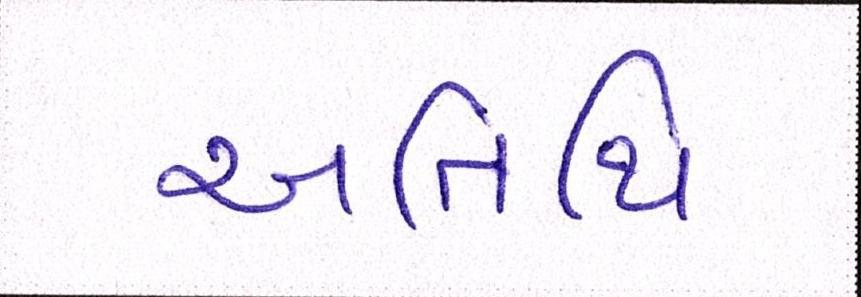 અતિથિ